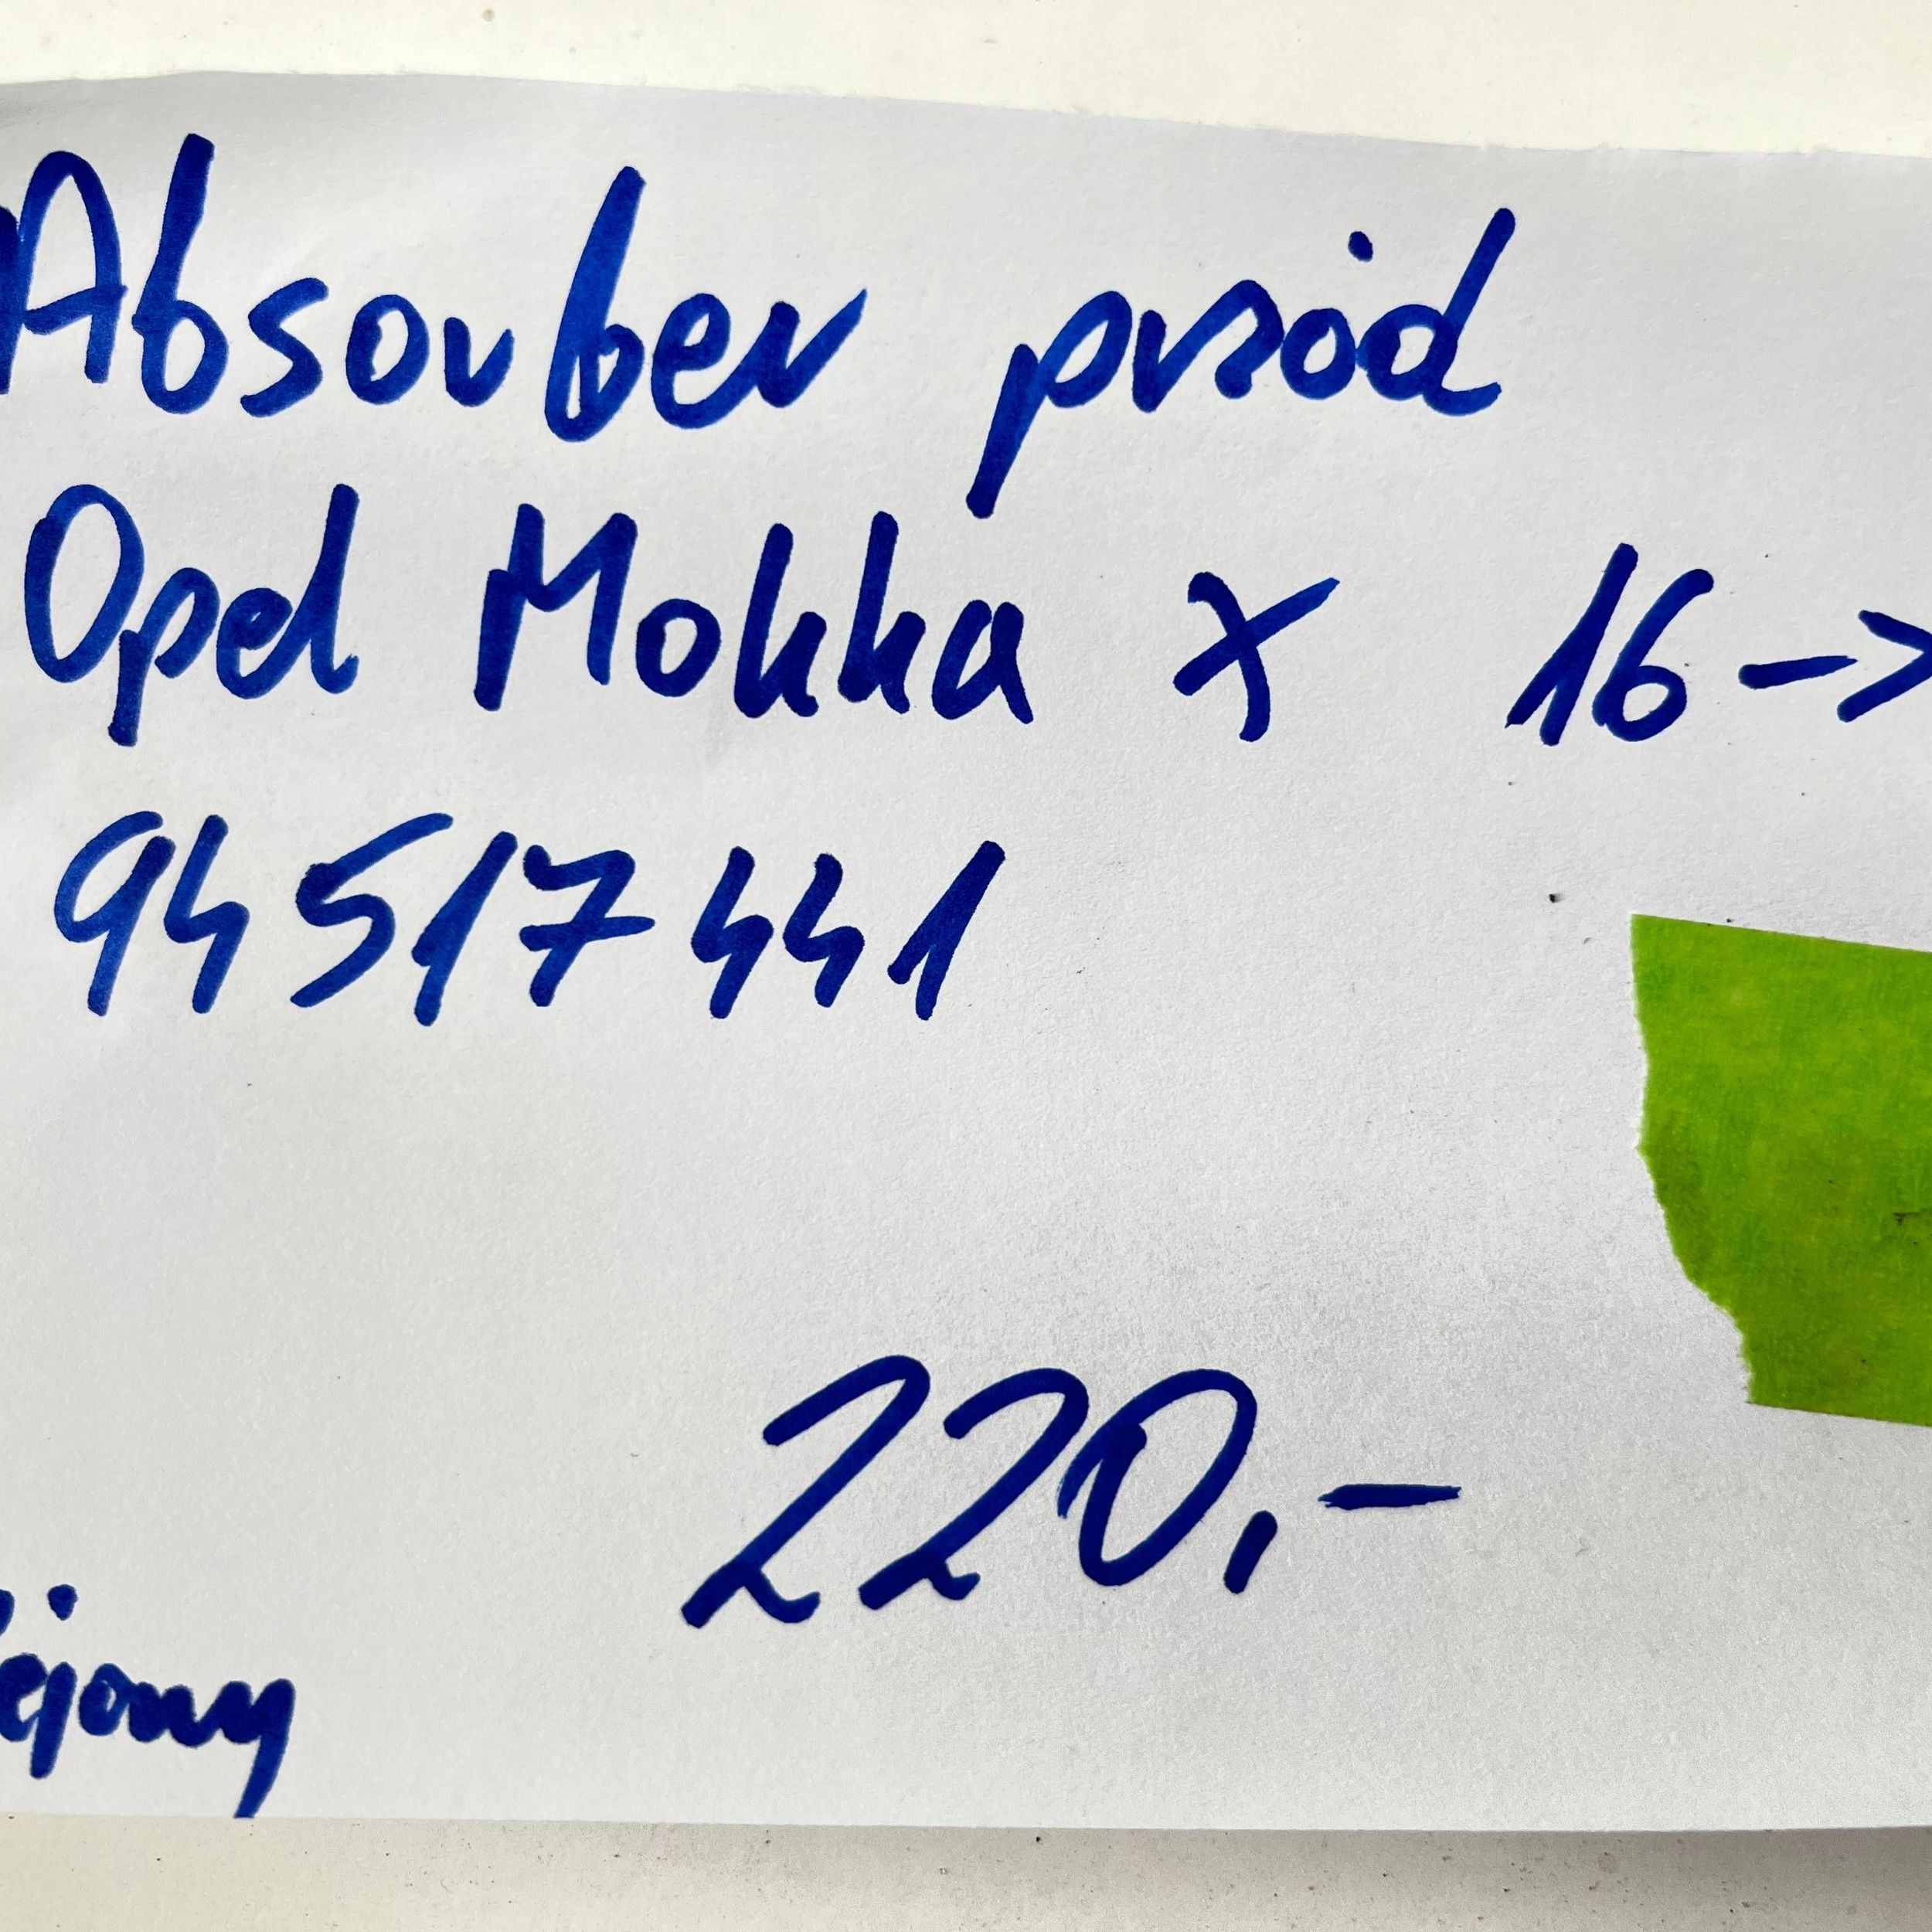 Absorber przód
Opel Mokka X 16->
94517441
220,-